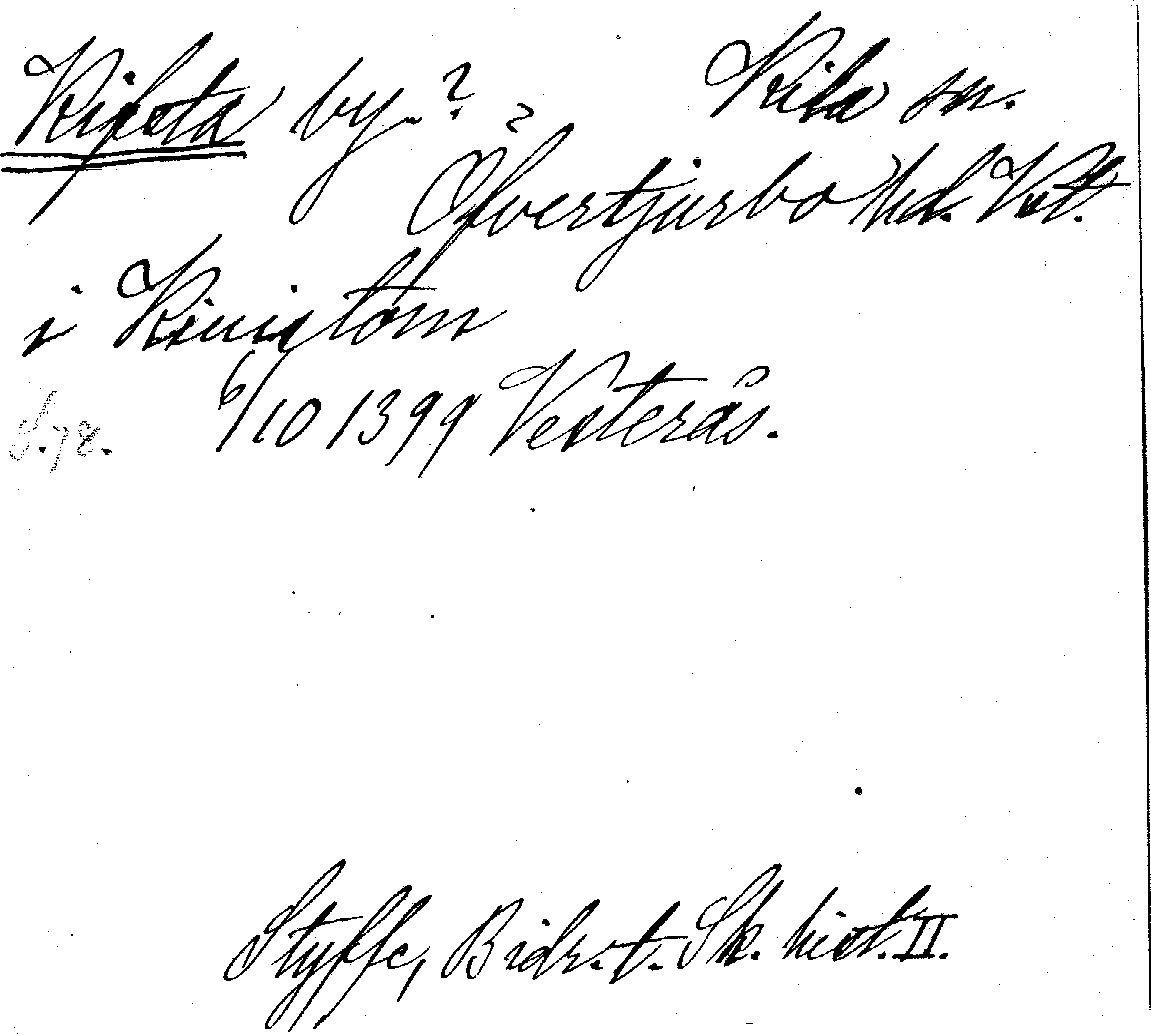 Kifsta by? Kila sn.
Öfvertjurbo hd. Vstl.
i Kiuistom
6/10 1399 Vesterås.
S. 78.
Styffe, Bidr. t. Sk. hist. II.